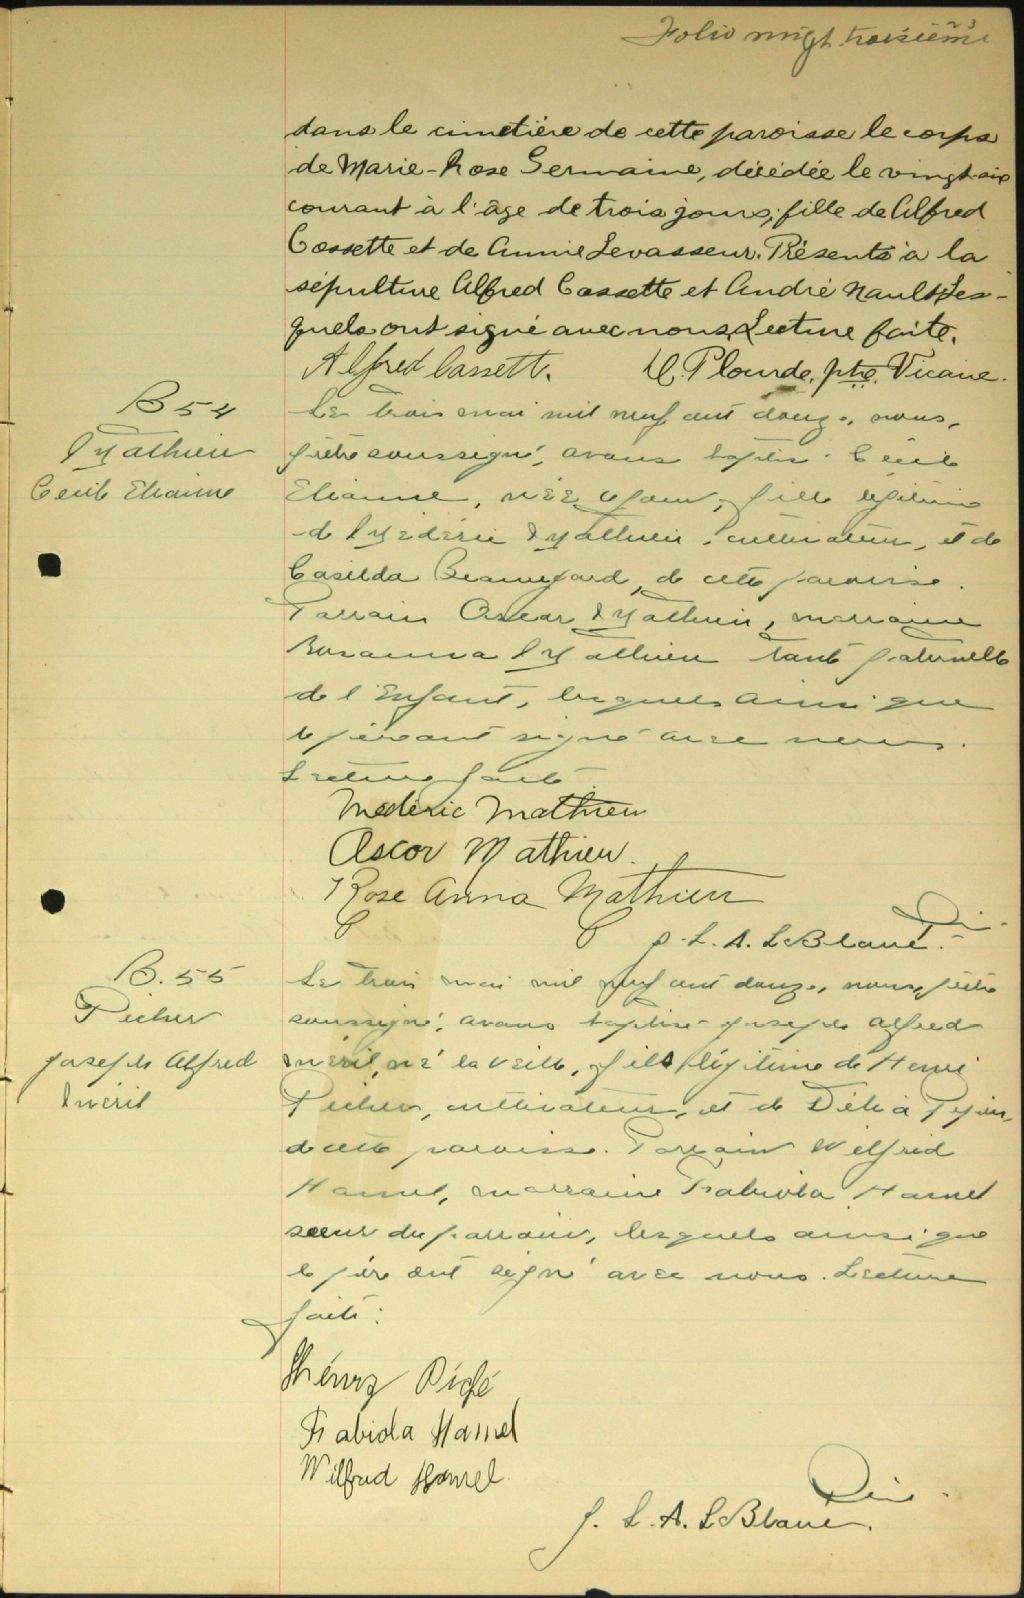 Folio vingt troisième 23
dans le cimetière de cette paroisse le corps
de Marie-Rose Germaine, décédée le vingt-six
courant à l'âge de trois jours, fille de Alfred
Cossette et de Annie Levasseur. Présents à la
sépulture Alfred Cossette et André Nault, les-
quels ont signé avec nous. Lecture faite.
Alfred Cassett. Plourde, ptre. Vicaire.
B 54
Mathieu
Cecile Elianne
Le trois mai mil neuf cent douze, nous,
prêtre soussigné, avons baptisé Cécile
Elianne, née ce jour, fille légitime
de Médéric Mathieu, cultivateur, et de
Casilda Beauregard, de cette paroisse.
Parrain Oscar Mathieu, marraine
Rosanna Mathieu tante paternelle
de l'Enfant, lesquels ainsi que
le père ont signé avec nous.
Lecture faite
Mederic Mathieu
Oscor Mathieu.
Rose Anna Mathieu
J. L. A. LeBlanc.
B. 55
Picher
Joseph Alfred
Méril
Le trois mai mil neuf cent douze, nous, prêtre
soussigné, avons baptisé Joseph Alfred
Méril, né la veille, fils légitime de Henri
Picher, cultivateur, et de Délia Pepin,
de cette paroisse. Parrain Wilfrid
Hamel, marraine Fabiola Hamel
soeur du parrain, lesquels ainsi que
le père ont signé avec nous. Lecture
faite:
Hénry Piché
Fabiola Hamel
Wilfrid Hamel.
J. L. A. LeBlanc.